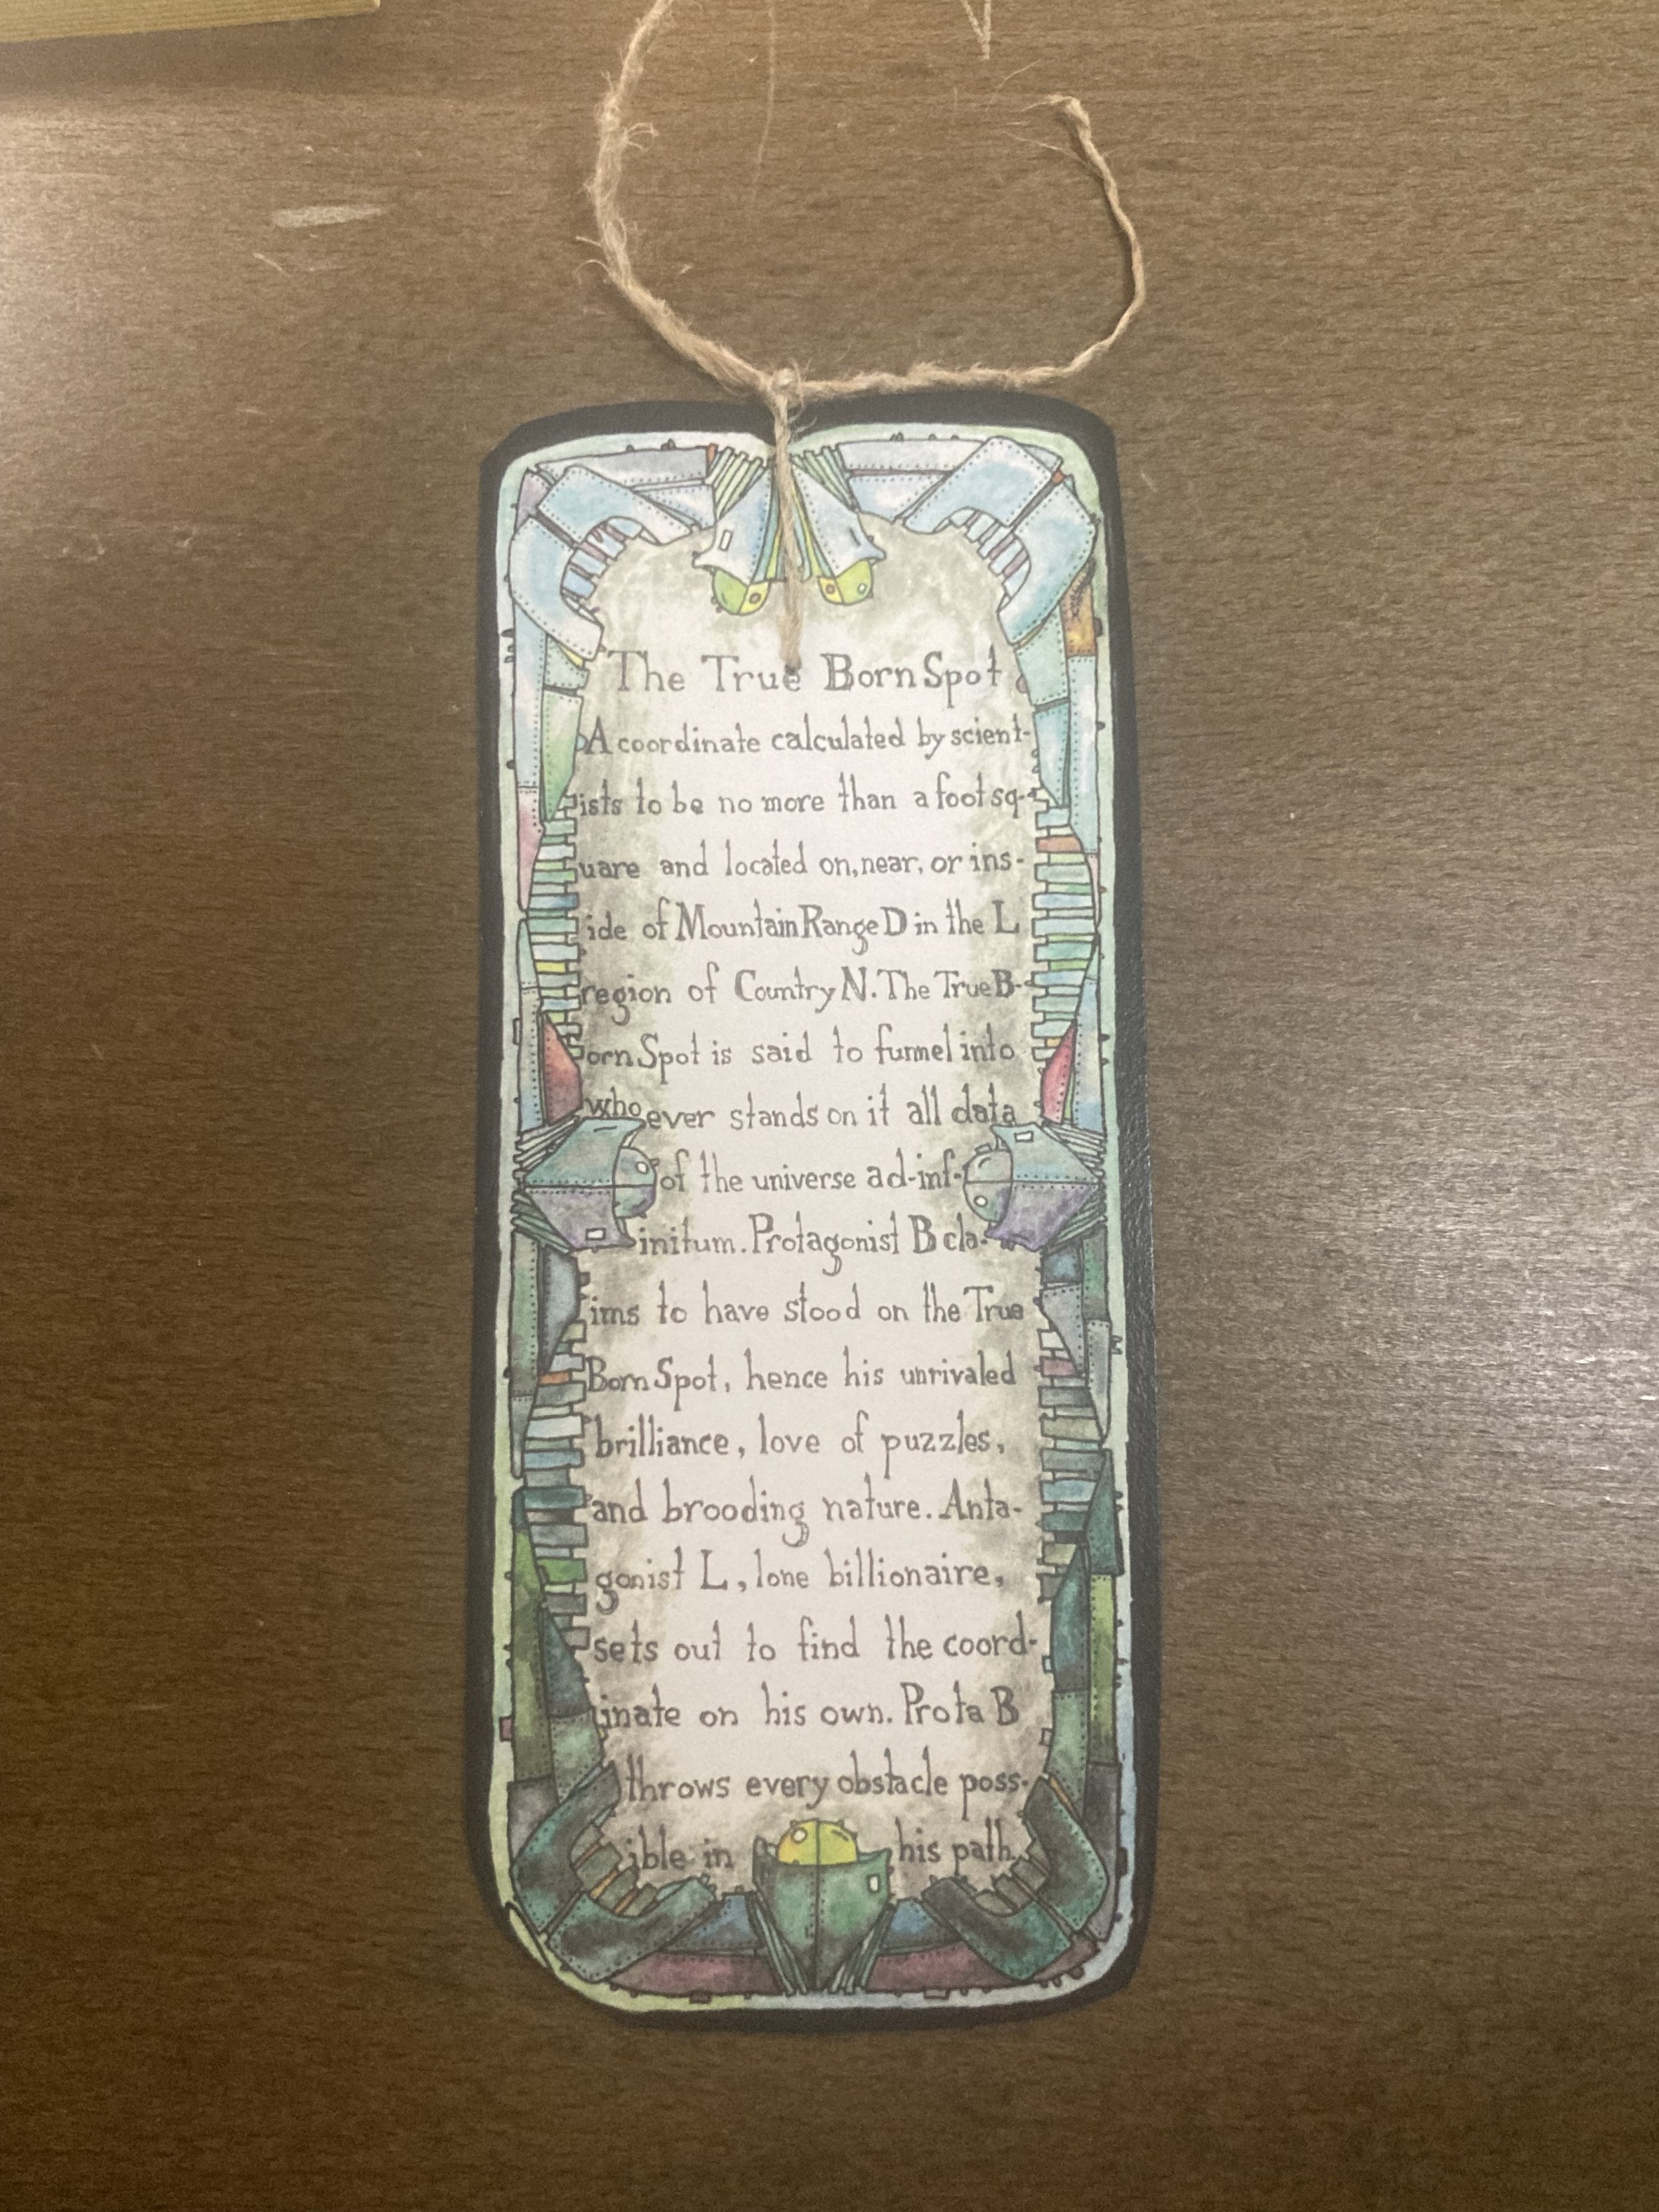 The True Born Spot
A coordinate calculated by scient-
ists to be no more than a foot sq-
uare and located on, near, or ins-
ide of Mountain Range D in the L
region of Country N. The True B-
orn Spot is said to funnel into
whoever stands on it all data
of the universe ad-inf-
initum. Protagonist B cla-
ims to have stood on the True
Born Spot, hence his unrivaled
brilliance, love of puzzles,
and brooding nature. Anta-
gonist L, lone billionaire,
sets out to find the coord-
inate on his own. Prota B
throws every obstacle poss-
ible in his path.